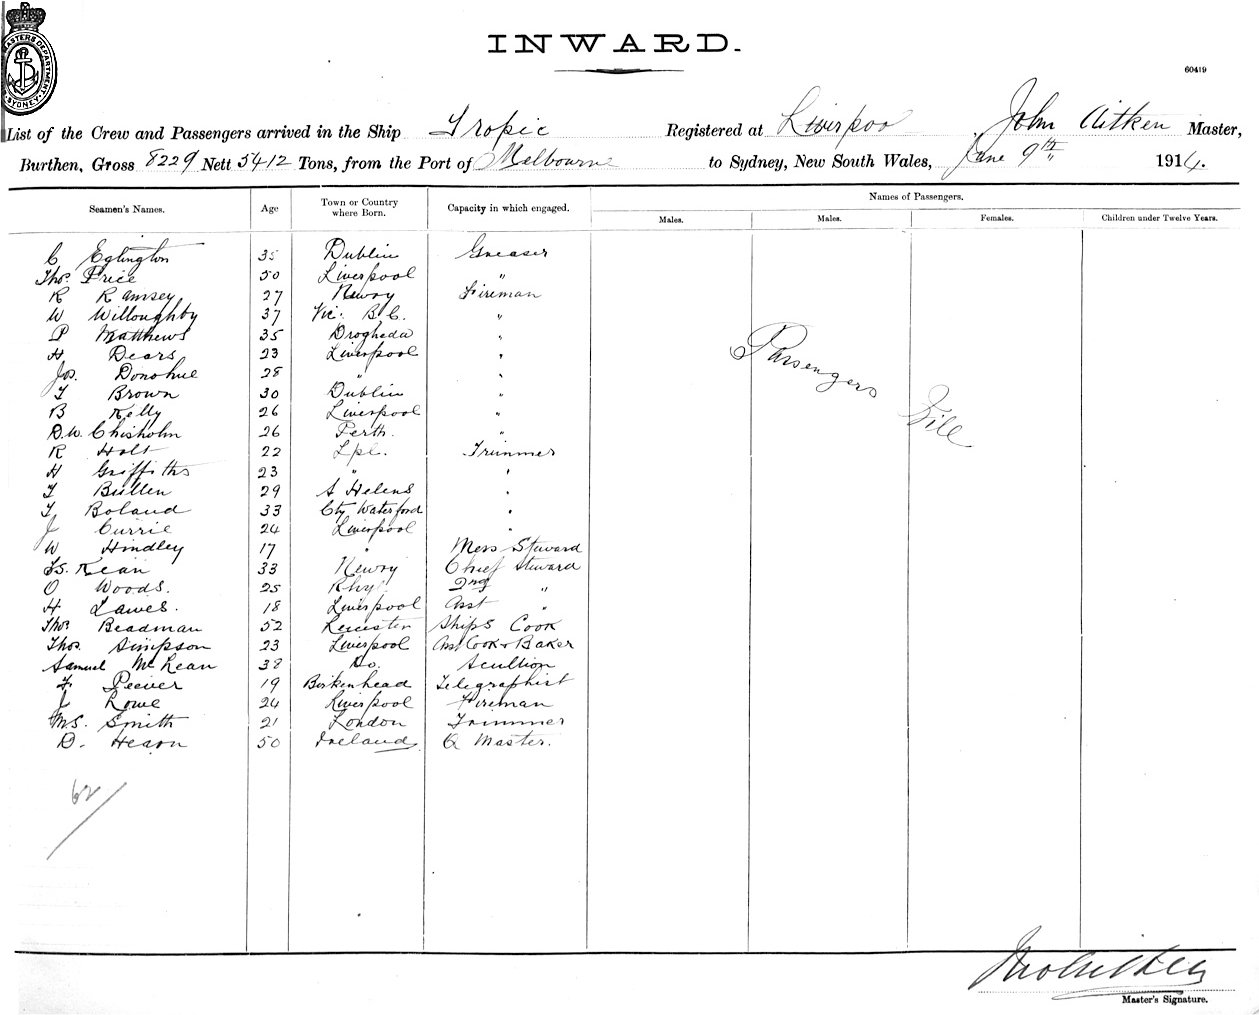 MASTERS DEPARTMENT. SYDNEY.
INWARD.
60419
List of the Crew and Passengers arrived in the Ship Tropic Registered at Liverpool, John Aitken Master,
Burthen, Gross 8229 Nett 5412 Tons, from the Port of Melbourne to Sydney, New South Wales, June 9th 1914.
Seamen's Names. Age Town or Country where Born. Capacity in which engaged. Names of Passengers.
Males. Males. Females. Children under Twelve Years.
C Eglington 35 Dublin Greaser
Thos. Price 50 Liverpool "
R Ramsey 27 Newry Fireman
W Willoughby 37 Vic. B.C. "
P Matthews 35 Drogheda "
H Dears 23 Liverpool "
Jos. Donohue 28 " "
T Brown 30 Dublin "
B Kelly 26 Liverpool "
D.W. Chisholm 26 Perth. "
R Holt 22 Lpl. Trimmer
H Griffiths 23 " "
T Bullen 29 St Helens "
T Boland 33 Cty Waterford "
J Currie 24 Liverpool "
W Hindley 17 " Mess Steward
Kean 33 Newry Chief Steward
O Woods. 25 Rhyl 2nd "
H Lawes. 18 Liverpool Asst "
Thos. Beadman 52 Leicester Ships Cook
Thos. Simpson 23 Liverpool Asst Cook & Baker
Samuel McKean 38 Do. Scullion
F Peever 19 Birkenhead Telegraphist
J Lowe 24 Liverpool Fireman
Ms. Smith 21 London Trimmer
D. Hearn 50 Ireland Q Master.
Passengers Nill
62
Jno Aitken
Master's Signature.